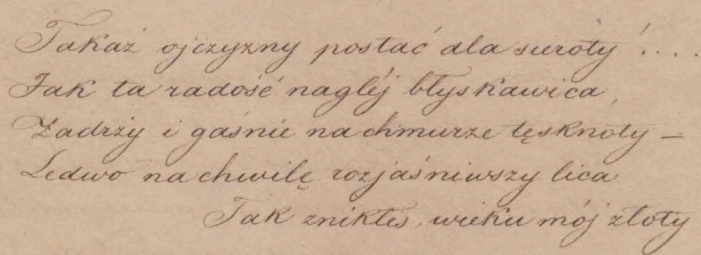 Takaż ojczyzny postać dla sieroty!....
Jak ta radość nagłéj błyskawica,
Zadrży i gaśnie na chmurze tęsknoty –
Ledwo na chwilę rozjaśniwszy lica
Tak znikłeś, wieku mój złoty